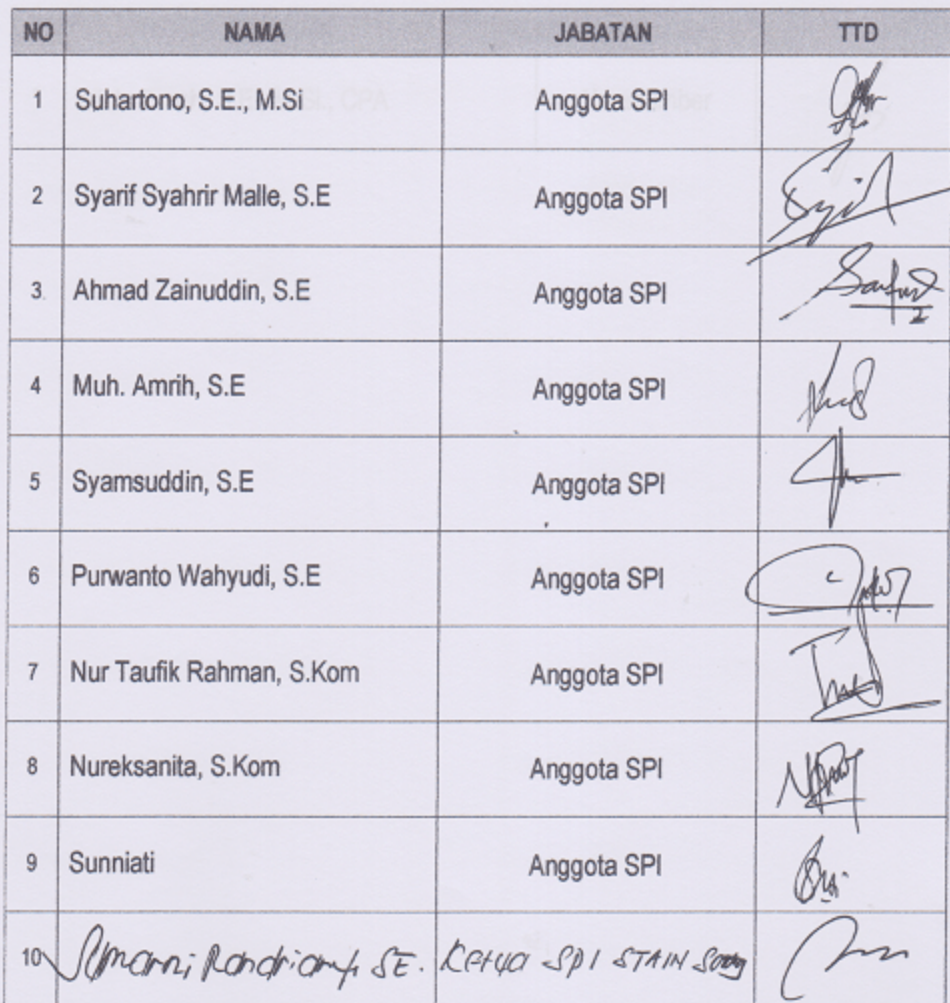 NO NAMA JABATAN TTD
1 Suhartono, S.E., M.Si Anggota SPI
2 Syarif Syahrir Malle, S.E Anggota SPI
3 Ahmad Zainuddin, S.E Anggota SPI
4 Muh. Amrih, S.E Anggota SPI
5 Syamsuddin, S.E Anggota SPI
6 Purwanto Wahyudi, S.E Anggota SPI
7 Nur Taufik Rahman, S.Kom Anggota SPI
8 Nureksanita, S.Kom Anggota SPI
9 Sunniati Anggota SPI
10 SE. Ketua SPI STAIN